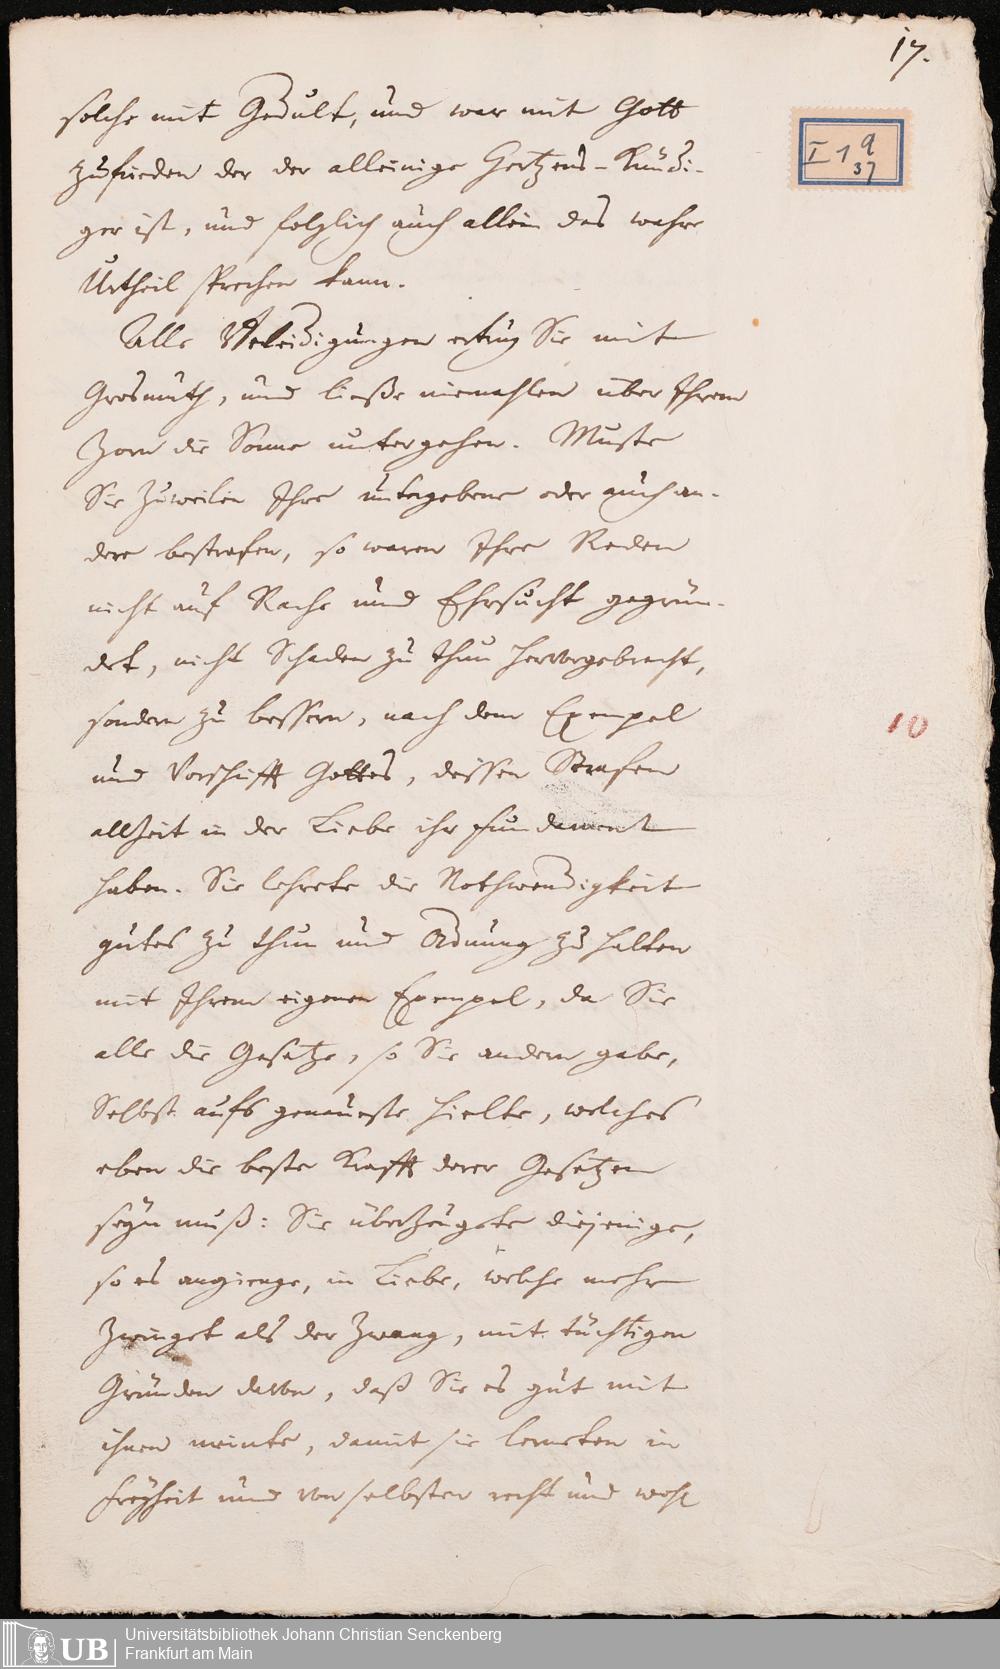 17.
I 1 9
37
solche mit Gedult, und war mit Gott
zufrieden der der alleinige Hertzens-Kündi-
ger ist, und folglich auch allein das wahre
Urtheil sprechen kann.
Alle Beleidigungen ertrug Sie mit
Grosmuth, und ließe niemahlen über Ihrem
Zorn die Sonne untergehen. Muste
Sie zuweilen Ihre untergebene oder auch an-
dere bestrafen, so waren Ihre Reden
nicht auf Rache und Ehrsucht gegrün-
det, nicht Schaden zu thun hervorgebracht,
sondern zu bessern, nach dem Exempel
und Vorschrifft Gottes, dessen Strafen
allzeit in der Liebe ihr fundament
haben. Sie lehrete die Nothwendigkeit
gutes zu thun und Ordnung zu halten
mit Ihrem eigenen Exempel, da Sie
alle die Gesetze, so Sie andern gabe,
Selbst aufs genaueste hielte, welches
eben die beste Krafft derer Gesetzen
seyn muß: Sie überzeugete diejenige,
so es angienge, in Liebe, welche mehr
zwinget als der Zwang, mit tüchtigen
Gründen davon, daß Sie es gut mit
ihnen meinte, damit sie lerneten in
freyheit und von selbsten recht und wohl
10
UB
Universitätsbibliothek Johann Christian Senckenberg
Frankfurt am Main